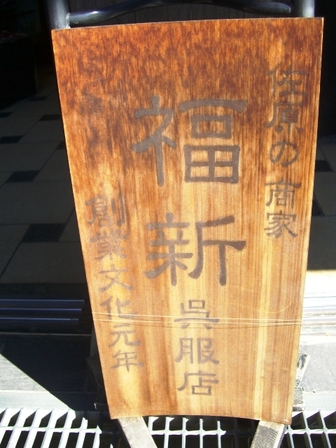 佐原の商家
福新
呉服店
創業文化元年